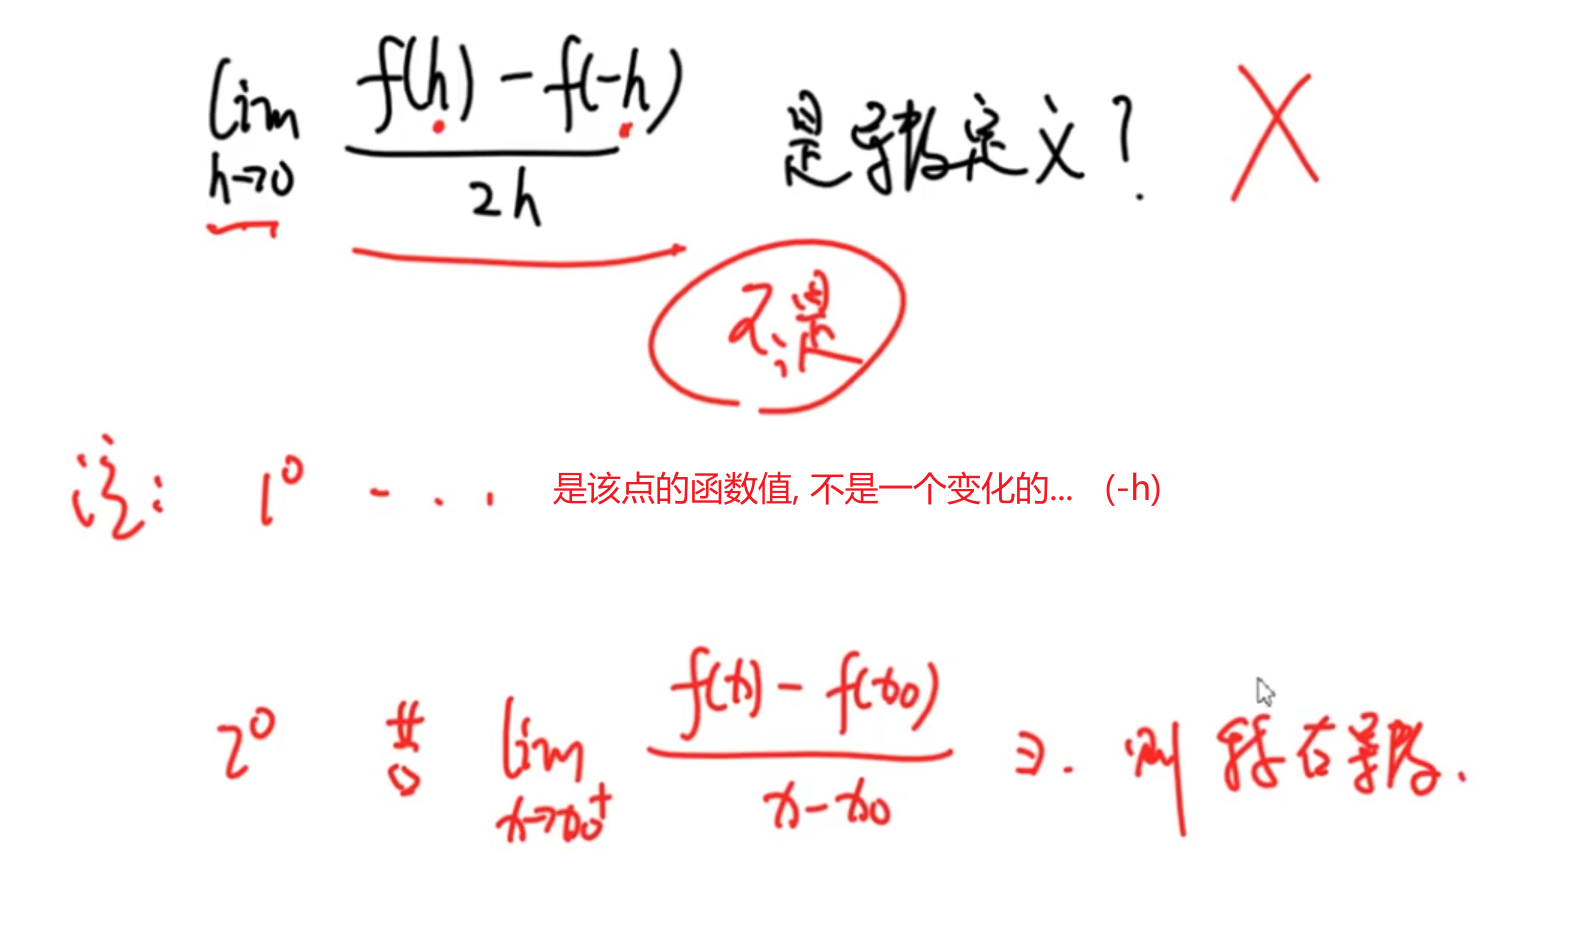 lim h→0 (f(h) - f(-h)) / 2h 是导数定义?
不是
注: 1° - . . 是该点的函数值, 不是一个变化的... (-h)
2° 若 lim x→x₀⁺ (f(x) - f(x₀)) / (x - x₀) ∃. 则 称右导数.